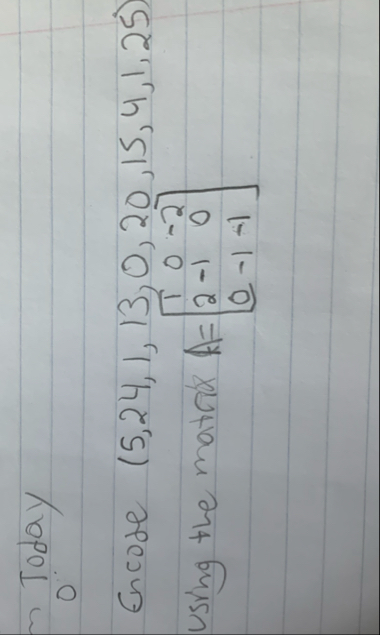 m Today
0
Encode (5,24,1,13,0,20,15,4,1,25)
1 0 -2
using the matrix A= 2 -1 0
0 -1 -1